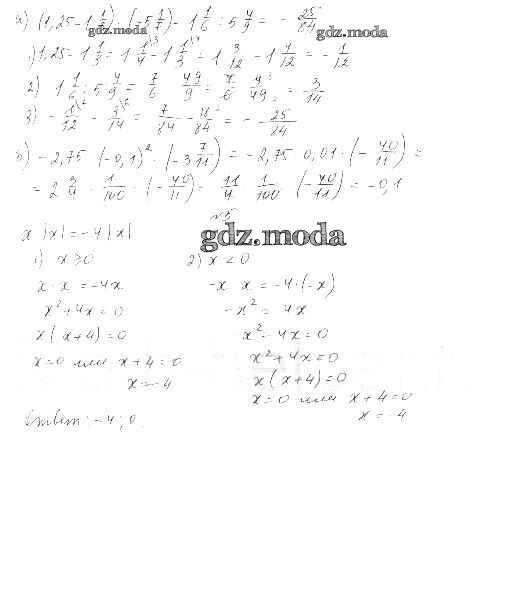 а) (1,25 - 1 1/3) · (-5 1/7) - 1 1/6 : 5 4/9 = - 25/84
gdz.moda
gdz.moda
1) 1,25 - 1 1/3 = 1 1/4 - 1 1/3 = 1 3/12 - 1 4/12 = - 1/12
2) 1 1/6 : 5 4/9 = 7/6 · 9/49 = 3/14
3) - 1/12 - 3/14 = - 25/84
б) -2,75 (-0,1)² · (-3 7/11) = -2,75 · 0,01 · (- 40/11) =
= -2 3/4 · 1/100 · (- 40/11) = 11/4 · 1/100 (- 40/11) = -0,1
№5
gdz.moda
x |x| = -4 |x|
1) x ≥ 0 2) x < 0
x · x = -4x -x · x = -4 · (-x)
x² + 4x = 0 -x² = 4x
x(x+4) = 0 x² - 4x = 0
x = 0 или x + 4 = 0 x² + 4x = 0
x = -4 x(x+4) = 0
x = 0 или x + 4 = 0
Ответ: -4; 0. x = -4